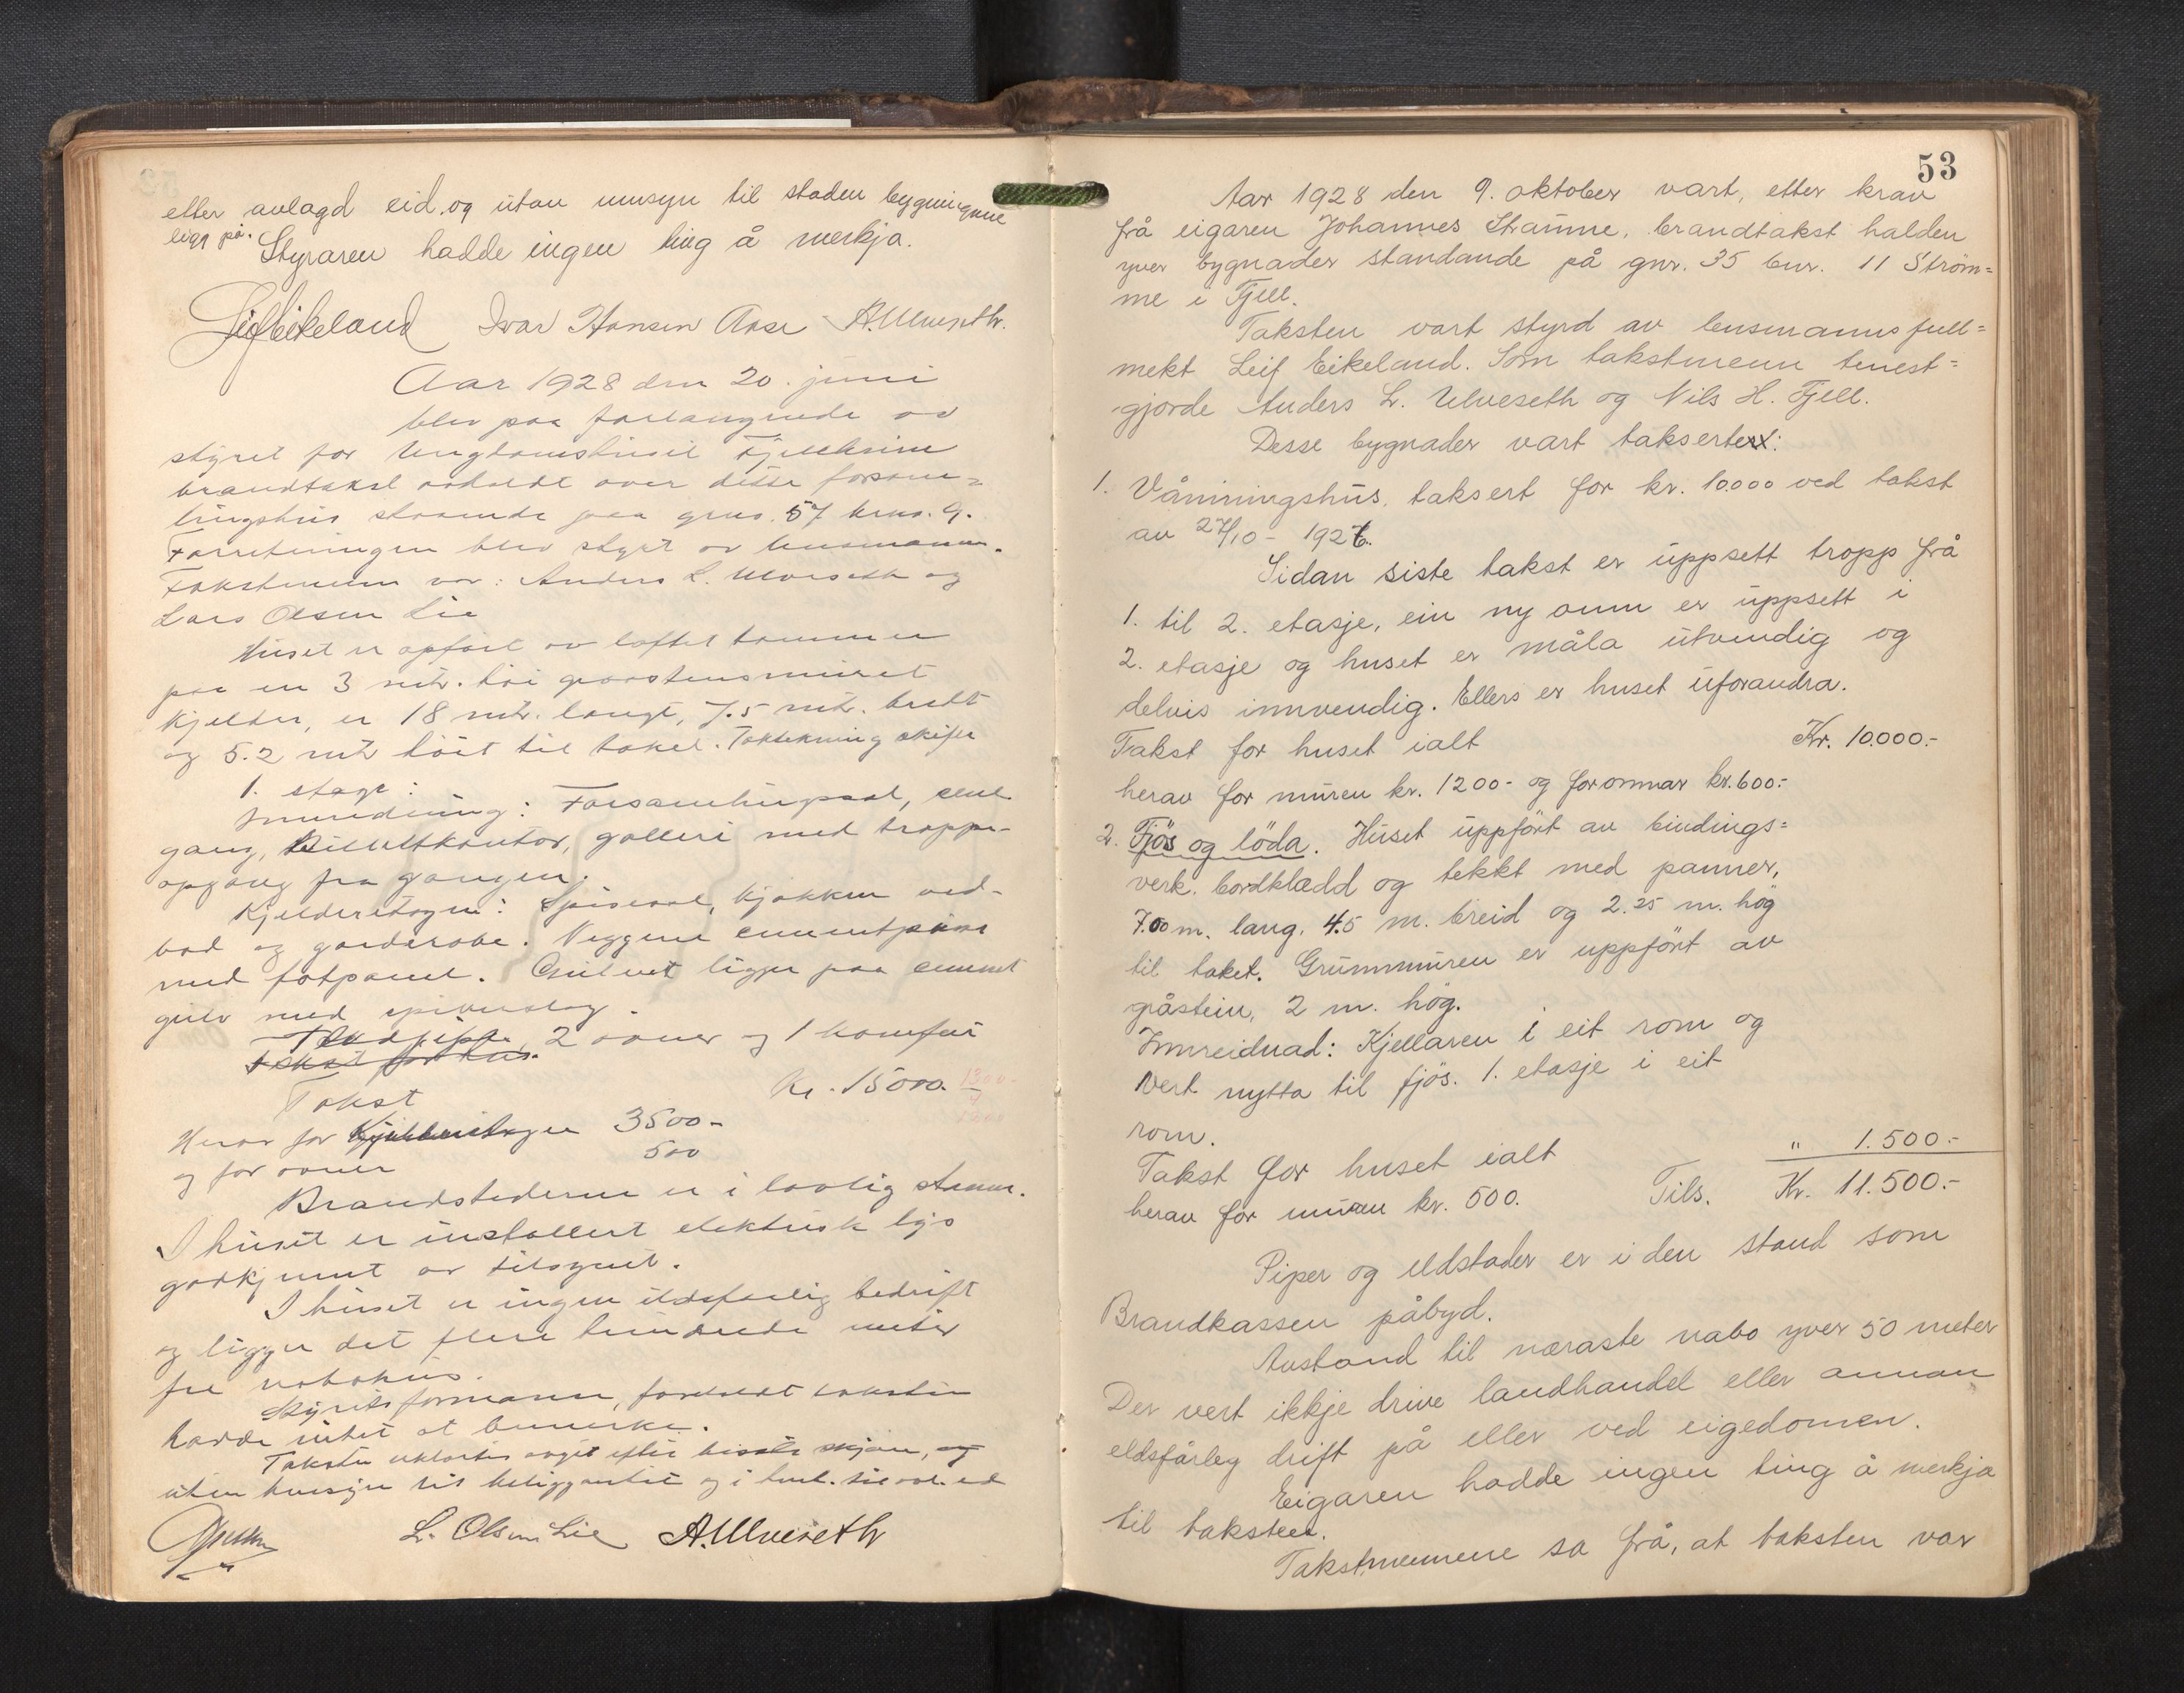 etter avlagd eid og utan umsyn til staden bygningane
ligg på.
Styraren hadde ingen ting å merkja.
Leif Eikeland Ivar Hansen Aase A. Ulveseth.
Aar 1928 den 20. juni
blev paa forlangende av
styret for Ungdomshuset Fjellheim
brandtakst avholdt over dette forsam=
lingshus staaende paa gnr. 57 brnr. 9.
Forretningen blev styrt av lensmannen.
Takstmenn var: Anders L. Ulveseth og
Lars Olsen Lie
Huset er opført av laftet tømmer
paa en 3 mtr. høi graastensmuret
kjelder, er 18 mtr. langt, 7.5 mtr. bredt
og 5.2 mtr høit til taket. Taktekning skifer
1. etage:
Innredning: Forsamlingssal, en
gang, Billettkontor, galleri med trappe-
opgang fra gangen.
Kjelderetagen: Spisesal, kjøkken ved-
bod og garderobe. Veggene cementpuss
med fotpanel. Gulvet ligger paa cement
gulv med
2 ovner og 1 komfur
Takst Kr. 15000.
Herav for Kjelderetagen 3500-
og for ovner 500
Brandstederne er i lovlig stand.
I huset er installert elektrisk lys
godkjennt av tilsynet.
I huset er ingen ildsfarlig bedrift
og ligger det flere hundrede meter
fra nabohus.
Styrets formann, forelest taksten
havde intet at bemerke.
Taksten erklærtes avgit efter beste skjøn, og
uten hensyn til beliggenhet og i henh. til avl. ed
L. Olsen Lie A. Ulveseth
53
Aar 1928 den 9. oktober vart, etter krav
frå eigaren Johannes Straume, brandtakst halden
yver bygnader standande på gnr. 35 bnr. 11 Ström=
me i Fjell.
Taksten vart styrd av lensmannsfull=
mekt Leif Eikeland. Som takstmenn tenest=
gjorde Anders L. Ulveseth og Nils H. Fjell.
Desse bygnader vart taksert:
1. Våningshus, taksert for kr. 10.000 ved takst
av 27/10 - 1926.
Sidan siste takst er uppsett tropp frå
1. til 2. etasje, ein ny omn er uppsett i
2. etasje og huset er måla utvendig og
delvis innvendig. Ellers er huset uforandra.
Takst for huset ialt Kr. 10.000.-
herav for muren kr. 1200- og for omnar kr. 600.-
2. Fjös og löda. Huset uppfört av bindings=
verk. bordklædd og tekkt med panner,
7.00 m. lang, 4.5 m. breid og 2.25 m. hög
til taket. Grunnmuren er uppfört av
gråstein, 2 m. hög.
Innreidnad: Kjellaren i eit rom og
vert nytta til fjös. 1. etasje i eit
rom.
Takst for huset ialt " 1.500.-
herav for muren kr. 500. Tils. Kr. 11.500.-
Piper og eldstader er i den stand som
Brandkassen påbyd.
Avstand til næraste nabo yver 50 meter
Der vert ikkje drive landhandel eller annan
eldsfårleg drift på eller ved eigedomen.
Eigaren hadde ingen ting å merkja
til taksten.
Takstmennene sa frå, at taksten var